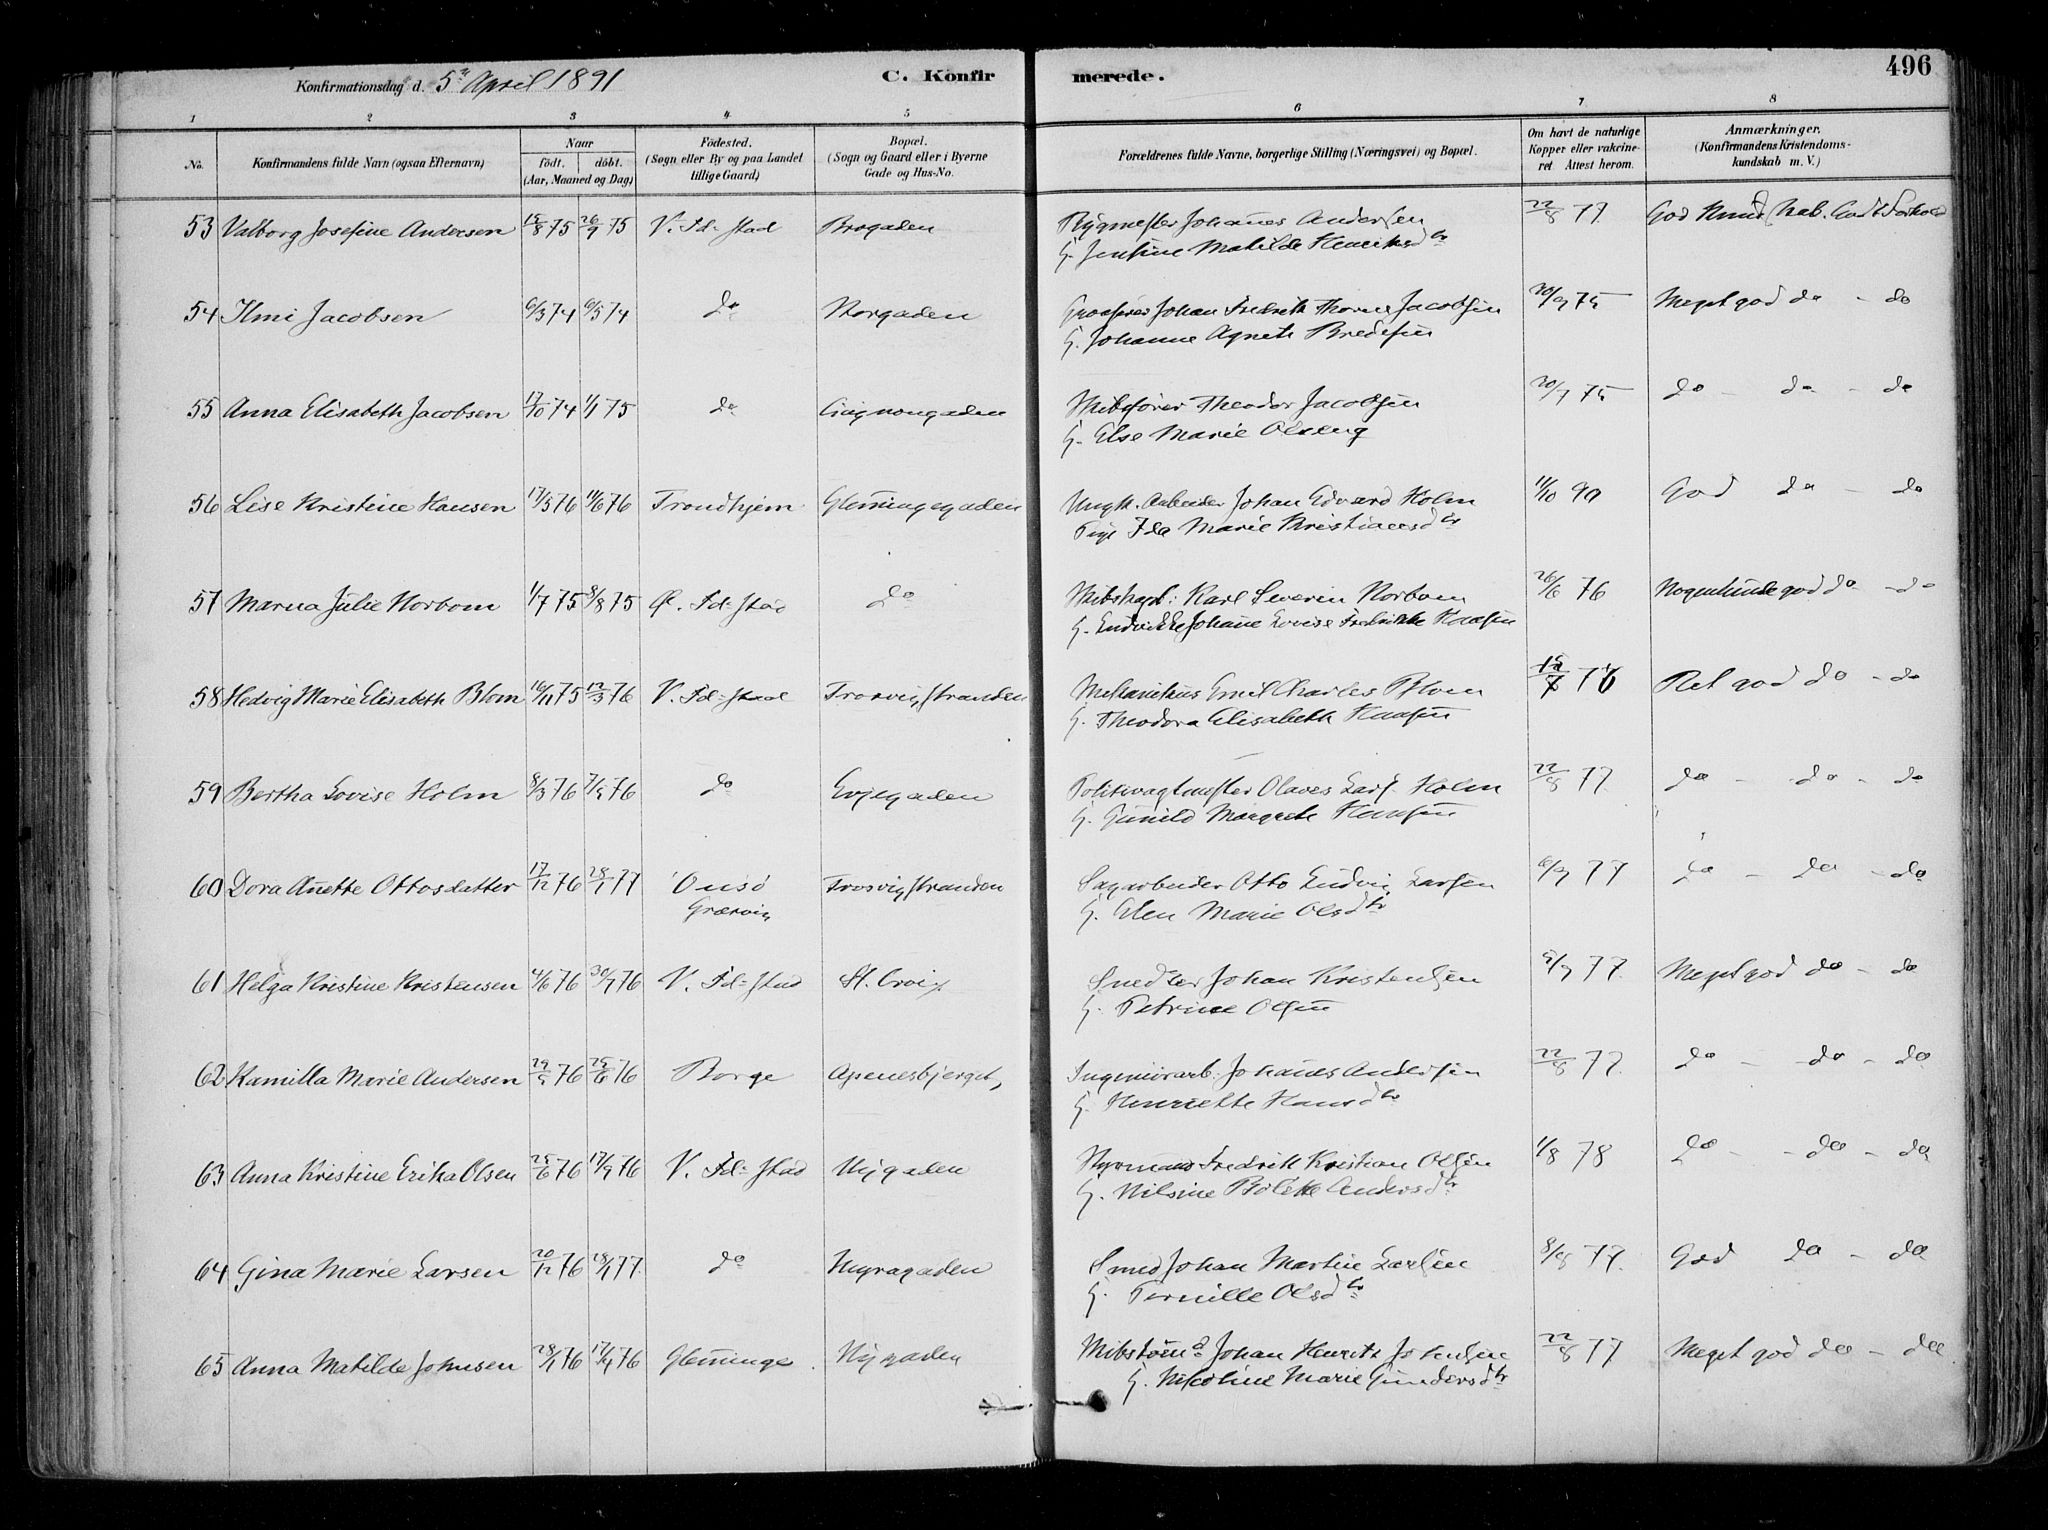 Konfirmationsdag d. 5te April 1891
C. Konfirmerede.
496
1 2 3 4 5 6 7 8
No. Konfirmandens fulde Navn (ogsaa Efternavn) Naar födt. döbt. (Aar, Maaned og Dag) Födested. (Sogn eller By og paa Landet tillige Gaard) Bopæl. (Sogn og Gaard eller i Byerne Gade og Hus-No. Forældrenes fulde Navne, borgerlige Stilling (Næringsvei) og Bopæl. Om havt de naturlige Kopper eller vakcineret Attest herom. Anmærkninger. (Konfirmandens Kristendomskundskab m. V.)
53 Valborg Josefine Andersen 15/8 75 26/9 75 V. Fd-stad Brogaden Rygmester Johanes Andersen 22/8 77 God Kund
G. Jensine Matilde Henriksdtr
54 Ilmi Jacobsen 6/3 74 6/5 74 do Storgaden Johan Fredrik Jacobsen 20/9 75 Meget god do - do
G. Johanne Agnete Bredesen
55 Anna Elisabeth Jacobsen 17/10 74 1/1 75 do Cicignongaden Skibsfører Theodor Jacobsen 20/9 75 do - do - do
G. Else Marie Olseng
56 Lise Kristine Hansen 17/5 76 11/6 76 Trondhjem Glemmingegaden Ungk. Arbeider Johan Edvard Holm 11/10 90 God do - do
Pige Ida Marie Kristiansdtr
57 Marna Julie Norbom 1/7 75 8/8 75 Ø. Fd-stad do Skibskapt: Karl Severin Norbom 26/6 76 Nogenlunde god do - do
G. Johane Lovise Fredrikke Hansen
58 Hedvig Marie Elisabeth Blom 16/11 75 12/3 76 V. Fd-stad Trosvigstranden Mekanikus Emil Charles Blom 76 Ret god do - do
G. Theodora Elisabeth Hansen
59 Bertha Lovise Holm 8/3 76 7/5 76 do Evjegaden Politivagtmester Olaves Lars. Holm 22/8 77 do - do - do
G. Gunild Margrete Hansen
60 Dora Anette Ottosdatter 17/12 76 28/1 77 Onsö Trosvigstranden Sagarbeider Otto Ludvig Larsen 6/9 77 do - do - do
Græsvig G. Elen Marie Olsdtr
61 Helga Kristine Kristensen 4/6 76 30/7 76 V. Fd-stad St. Croix Snedker Johan Kristensen 5/9 77 Meget god do - do
G. Petrine Olsen
62 Kamilla Marie Andersen 29/5 76 25/6 76 Borge Apenesbjerget, Ingeniørarb. Johanes Andersen 22/8 77 do - do - do
G. Henriette Hansdtr
63 Anna Kristine Erika Olsen 25/6 76 17/9 76 V. Fd-stad Nygaden Styrmand Fredrik Kristian Olsen 1/8 78 do - do - do
G. Nilsine Bolette Andersdtr
64 Gina Marie Larsen 20/12 76 28/1 77 do Myragaden Smed Johan Martin Larsen 8/8 77 God do - do
G. Pernille Olsdtr
65 Anna Matilde Johnsen 28/1 76 17/4 76 Glemminge Nygaden Skibstømmd Johan Henrik Johnsen 22/8 77 Meget god do - do
G. Nicoline Marie Gundersdtr